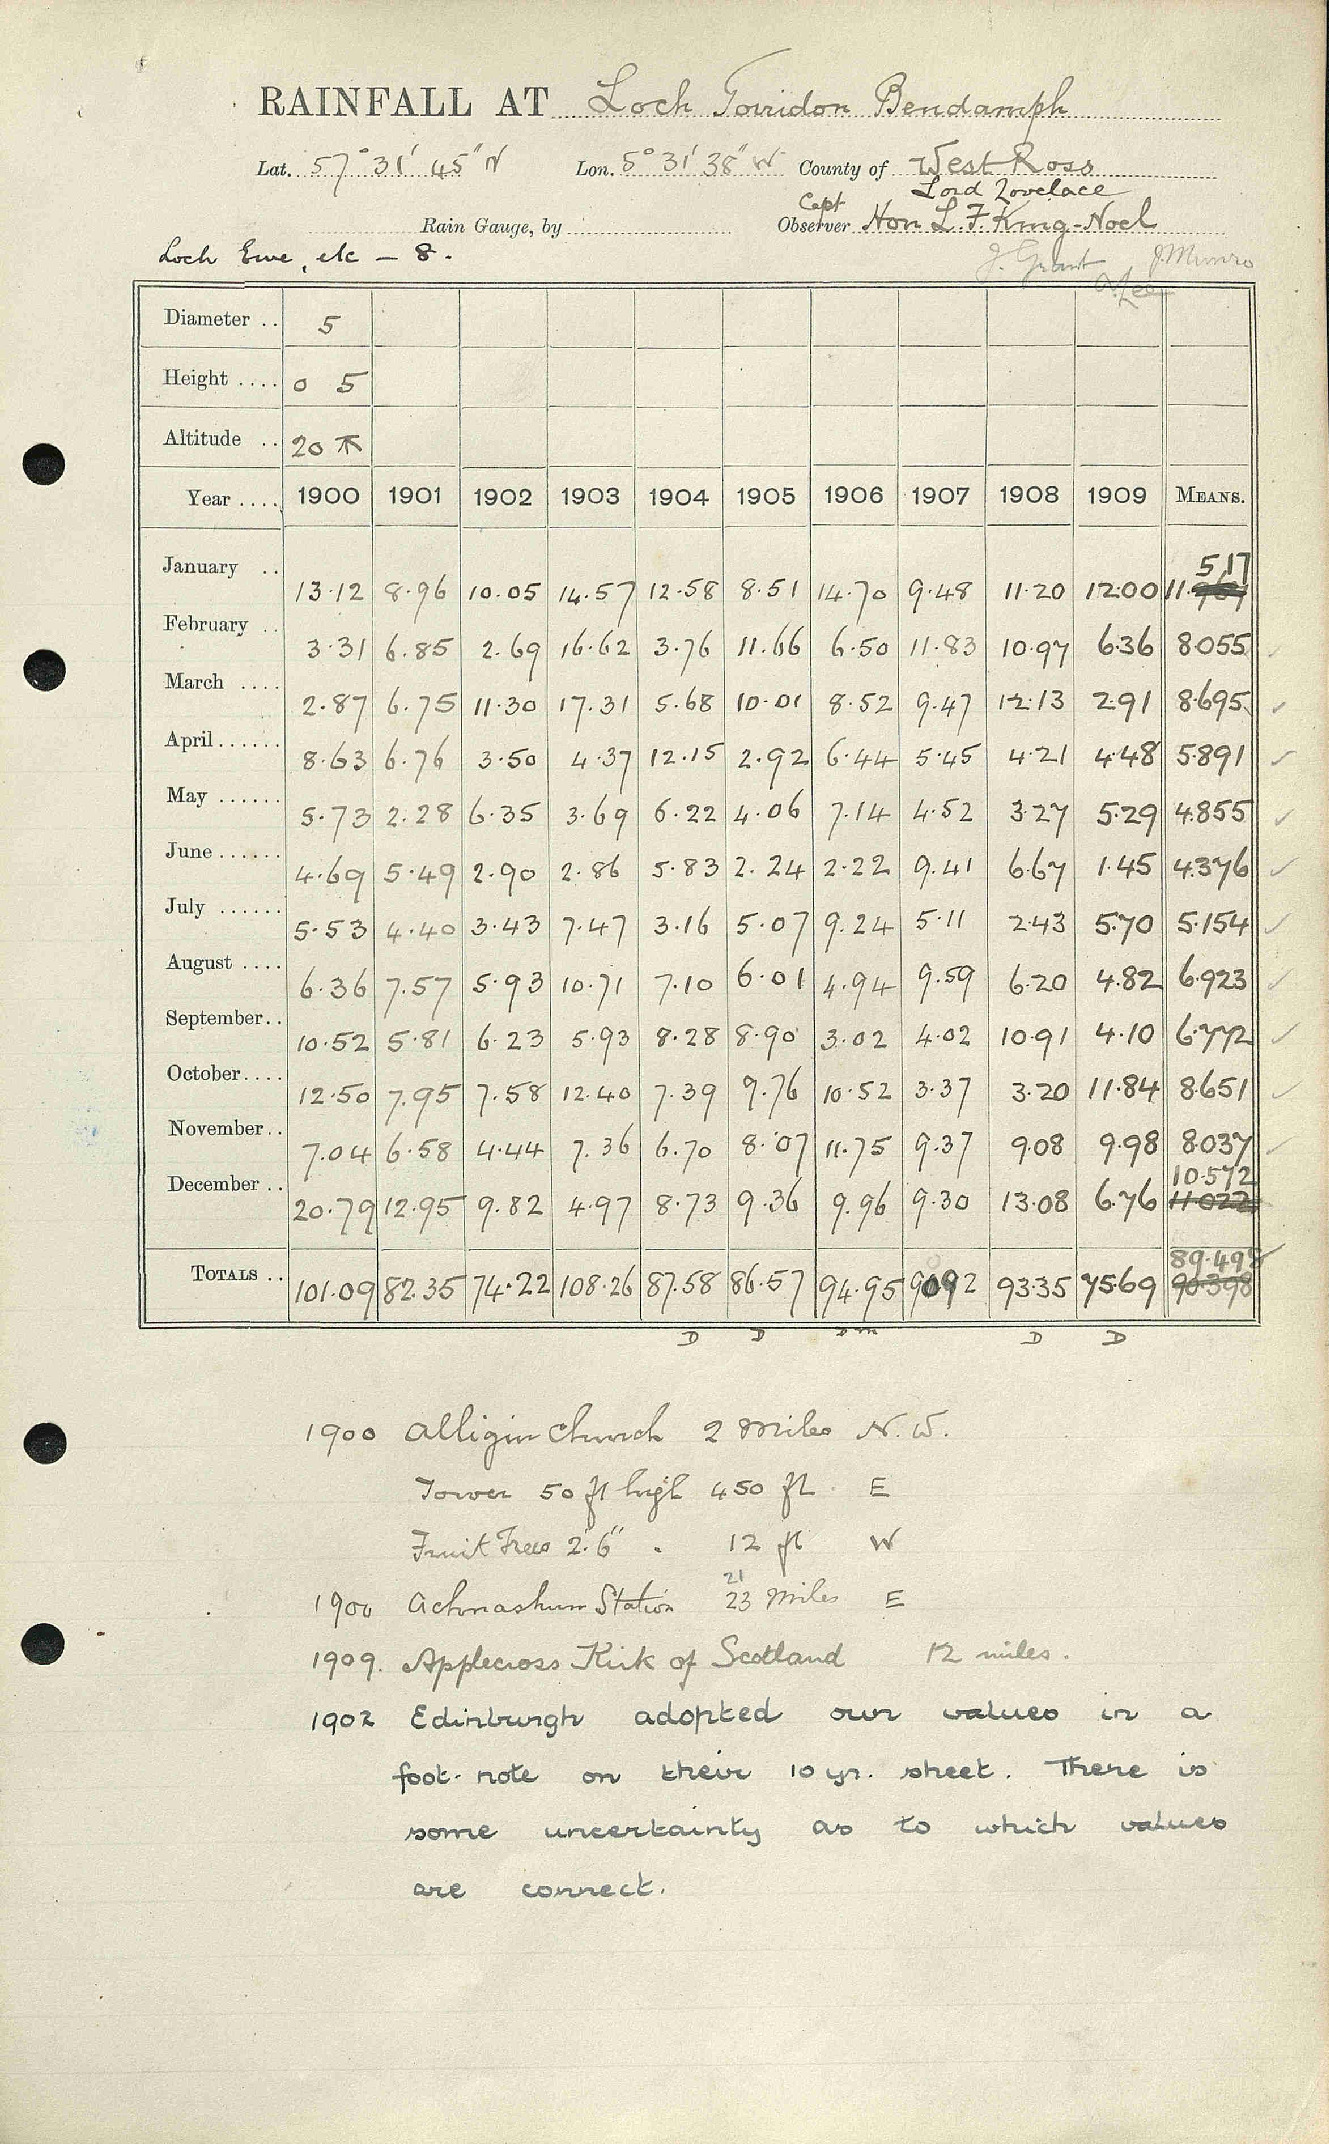 RAINFALL AT Loch Torridon Bendamph
Lat. 57° 31' 45" N Lon. 5° 31' 38" W County of West Ross
Lord Lovelace
Capt
Rain Gauge, by Observer Hon L. F. King-Noel
Loch Ewe, etc – 8.
J. Grant J. Munro
Diameter .. 5
Height .... 0 5
Altitude .. 20
Year .... 1900 1901 1902 1903 1904 1905 1906 1907 1908 1909 MEANS.
517
January .. 13.12 8.96 10.05 14.57 12.58 8.51 14.70 9.48 11.20 12.00 11.
February .. 3.31 6.85 2.69 16.62 3.76 11.66 6.50 11.83 10.97 6.36 8.055
March .... 2.87 6.75 11.30 17.31 5.68 10.01 8.52 9.47 12.13 2.91 8.695
April...... 8.63 6.76 3.50 4.37 12.15 2.92 6.44 5.45 4.21 4.48 5.891
May ...... 5.73 2.28 6.35 3.69 6.22 4.06 7.14 4.52 3.27 5.29 4.855
June...... 4.69 5.49 2.90 2.86 5.83 2.24 2.22 9.41 6.67 1.45 4.376
July ...... 5.53 4.40 3.43 7.47 3.16 5.07 9.24 5.11 2.43 5.70 5.154
August .... 6.36 7.57 5.93 10.71 7.10 6.01 4.94 9.59 6.20 4.82 6.923
September.. 10.52 5.81 6.23 5.93 8.28 8.90 3.02 4.02 10.91 4.10 6.772
October.... 12.50 7.95 7.58 12.40 7.39 9.76 10.52 3.37 3.20 11.84 8.651
November.. 7.04 6.58 4.44 7.36 6.70 8.07 11.75 9.37 9.08 9.98 8.037
10.572
December .. 20.79 12.95 9.82 4.97 8.73 9.36 9.96 9.30 13.08 6.76 11.022
89.498
TOTALS .. 101.09 82.35 74.22 108.26 87.58 86.57 94.95 90.92 93.35 75.69 90.398
D D D m D D
1900 Alligin Church 2 Miles N. W.
Tower 50 ft high 450 ft. E
Fruit Trees 2' 6" . 12 ft W
21
1900 Achnashun Station 23 Miles E
1909. Applecross Kirk of Scotland 12 miles.
1902 Edinburgh adopted our values in a
foot-note on their 10 yr. sheet. There is
some uncertainty as to which values
are correct.